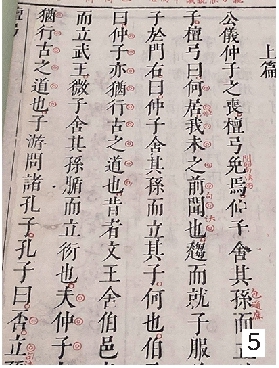 上篇
公儀仲子之喪檀弓免焉仲子舍其孫而立
子檀弓曰何居我未之前聞也趨而就子服
子於門右曰仲子舍其孫而立其子何也伯
曰仲子亦猶行古之道也昔者文王舍伯邑
而立武王微子舍其孫腯而立衍也夫仲子
猶行古之道也子游問諸孔子孔子曰否立孫
5